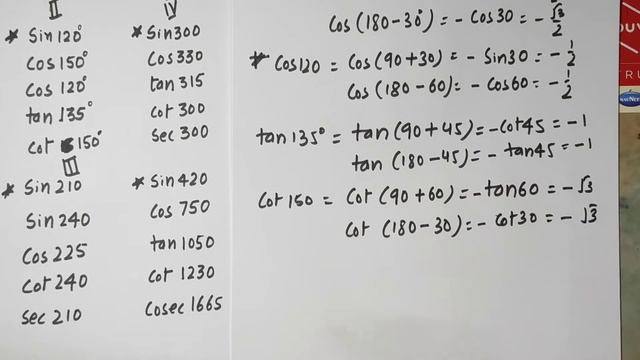 II
* Sin 120°
Cos 150°
Cos 120°
tan 135°
Cot 150°
III
* Sin 210
Sin 240
Cos 225
Cot 240
Sec 210
IV
* Sin 300
Cos 330
tan 315
Cot 300
Sec 300
* Sin 420
Cos 750
tan 1050
Cot 1230
Cosec 1665
Cos (180-30°) = - Cos 30 = - √3/2
* Cos 120 = Cos (90+30) = - Sin 30 = - 1/2
Cos (180-60) = - Cos 60 = - 1/2
tan 135° = tan (90+45) = - Cot 45 = -1
tan (180-45) = - tan 45 = -1
Cot 150 = Cot (90+60) = - tan 60 = - √3
Cot (180-30) = - Cot 30 = - √3